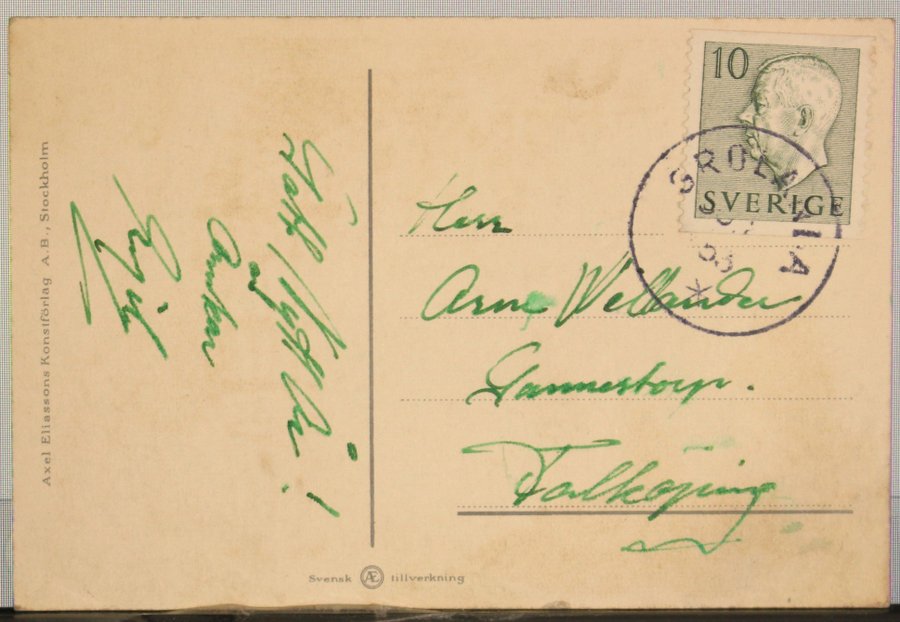 Axel Eliassons Konstförlag A.B., Stockholm
Gott Nytt År!
Erik
10
SVERIGE
GROLANDA
Herr
Arne Wellander
Jannestorp.
Falköping
Svensk Æ tillverkning